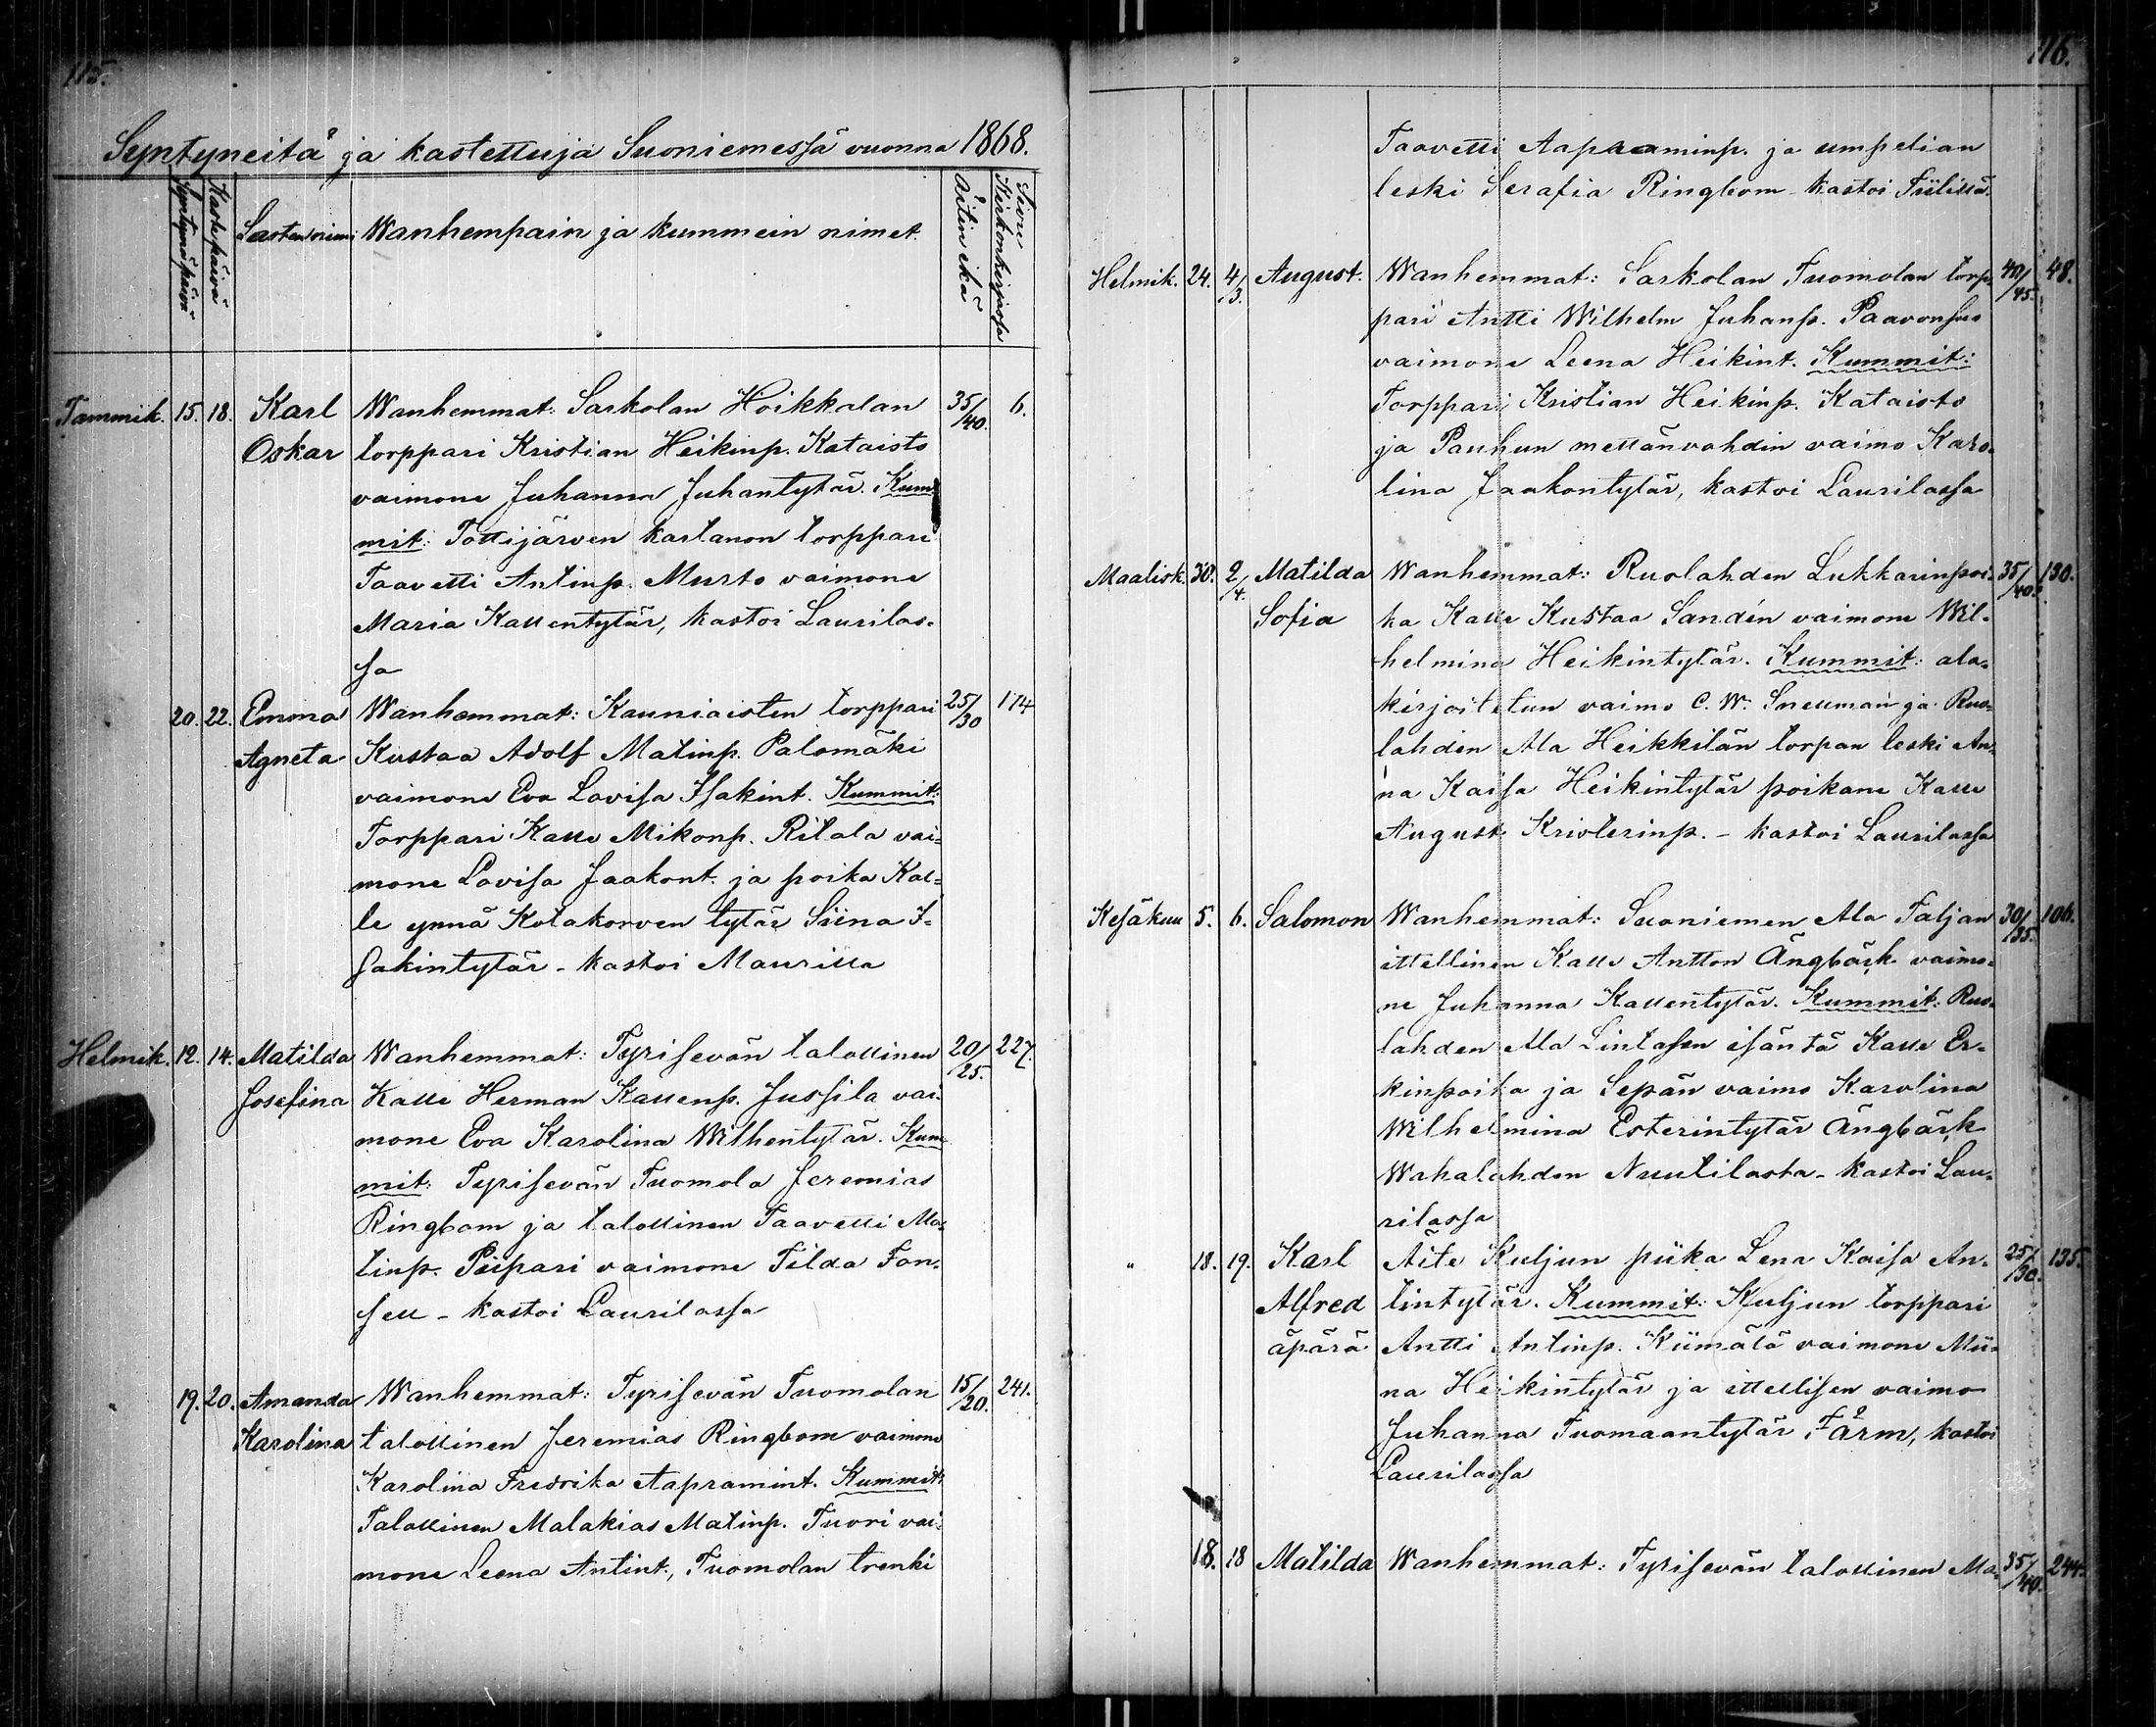 115.
Syntyneitä ja kastettuja Suoniemessä vuonna 1868.
Syntymäpäivä
Kastepäivä
Lasten nimi
Wanhempain ja kummein nimet.
Äitin ikä
Sivu Kirkonkirjassa
Tammik. 15. 18. Karl Wanhemmat: Sarkolan Hoikkalan 35/40. 6.
Oskar torppari Kristian Heikinp. Kataisto
vaimone Juhanna Juhantytär. Kum
mit: Tottijärven kartanon torppari
Taavetti Antinp. Murto vaimone
Maria Kallentytär, kastoi Laurilas-
sa
20. 22. Emma Wanhemmat: Kauniaisten torppari 25/30 174
Agneta Kustaa Adolf Matinp. Palomäki
vaimone Eva Lovisa Isakint. Kummit:
Torppari Kalle Mikonp. Ritala vai-
mone Lovisa Jaakont. ja poika Kal-
le ynnä Kotakorven tytär Siina I-
sakintytär - kastoi Maurilla
Helmik. 12. 14. Matilda Wanhemmat: Tyrisevän talollinen 20/25. 227.
Josefina Kalle Herman Kallenp. Jussila vai-
mone Eva Karolina Wilhentytär. Kum
mit: Tyrisevän Tuomola Jeremias
Ringbom ja talollinen Taavetti Ma-
tinp. Piipari vaimone Tilda Fon-
sell - kastoi Laurilassa
19. 20. Amanda Wanhemmat: Tyrisevän Tuomolan 15/20. 241.
Karolina talollinen Jeremias Ringbom vaimone
Karolina Fredrika Aapramint. Kummit:
Talollinen Malakias Matinp. Tuori vai-
mone Leena Antint., Tuomolan trenki
116.
Taavetti Aapraminp. ja umpelian
leski Serafia Ringbom - kastoi
Helmik. 24. 4/3. August. Wanhemmat: Sarkolan Tuomolan torp- 40/45. 48.
pari Antti Wilhelm Juhanp.
vaimone Leena Heikint. Kummit:
Torppari Kristian Heikinp. Kataisto
ja Pauhun mettänvahdin vaimo Karo-
lina Jaakontytär, kastoi Laurilassa
Maalisk. 30. 2/4. Matilda Wanhemmat: Ruolahden Lukkarinpoi- 35/40. 130.
Sofia ka Kalle Kustaa Sandén vaimone Wil-
helmina Heikintytär. Kummit: ala-
kirjoitetun vaimo C. W. Snellman ja Ruo-
lahden Ala Heikkilän torpan leski An-
na Kaisa Heikintytär poikane Kalle
August Kristerinp. - kastoi Laurilassa
Kesäkuu 5. 6. Salomon Wanhemmat: Suoniemen Ala Taljan 30/35. 106.
ittellinen Kalle Antton Ängbäck vaimo-
ne Juhanna Kallentytär. Kummit: Ruo-
lahden Ala Lintasen isäntä Kalle Er-
kinpoika ja Sepän vaimo Karolina
Wilhelmina Esterintytär Ängbäck
Wahalahden Nuutilasta - kastoi Lau-
rilassa
" 18. 19. Karl Äite Kuljun piika Lena Kaisa An- 25/30. 135.
Alfred tintytär. Kummit: Kuljun torppari
äpärä Antti Antinp. Kiimälä vaimone Mii-
na Heikintytär ja ittellisen vaimo
Juhanna Tuomaantytär Färm, kastoi
Laurilassa
18. 18 Matilda Wanhemmat: Tyrisevän talollinen Ma- 35/40. 244.